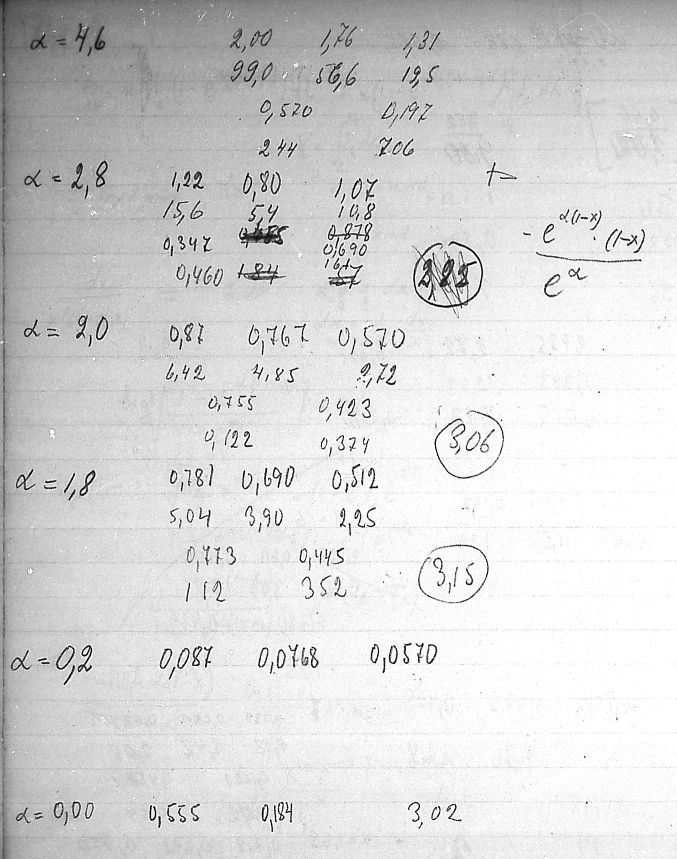 α = 4,6 2,00 1,76 1,31
99,0 56,6 19,5
0,570 0,197
244 706
α = 2,8 1,22 0,80 1,07
15,6 5,4 10,8
0,347 0,878
0,690
0,460 1,84 161
- e^α(1-x) · (1-x)
e^α
α = 2,0 0,87 0,767 0,570
6,42 4,85 2,72
0,755 0,423
0,122 0,374 3,06
α = 1,8 0,781 0,690 0,512
5,04 3,90 2,25
0,773 0,445
112 352 3,15
α = 0,2 0,087 0,0768 0,0570
α = 0,00 0,555 0,184 3,02